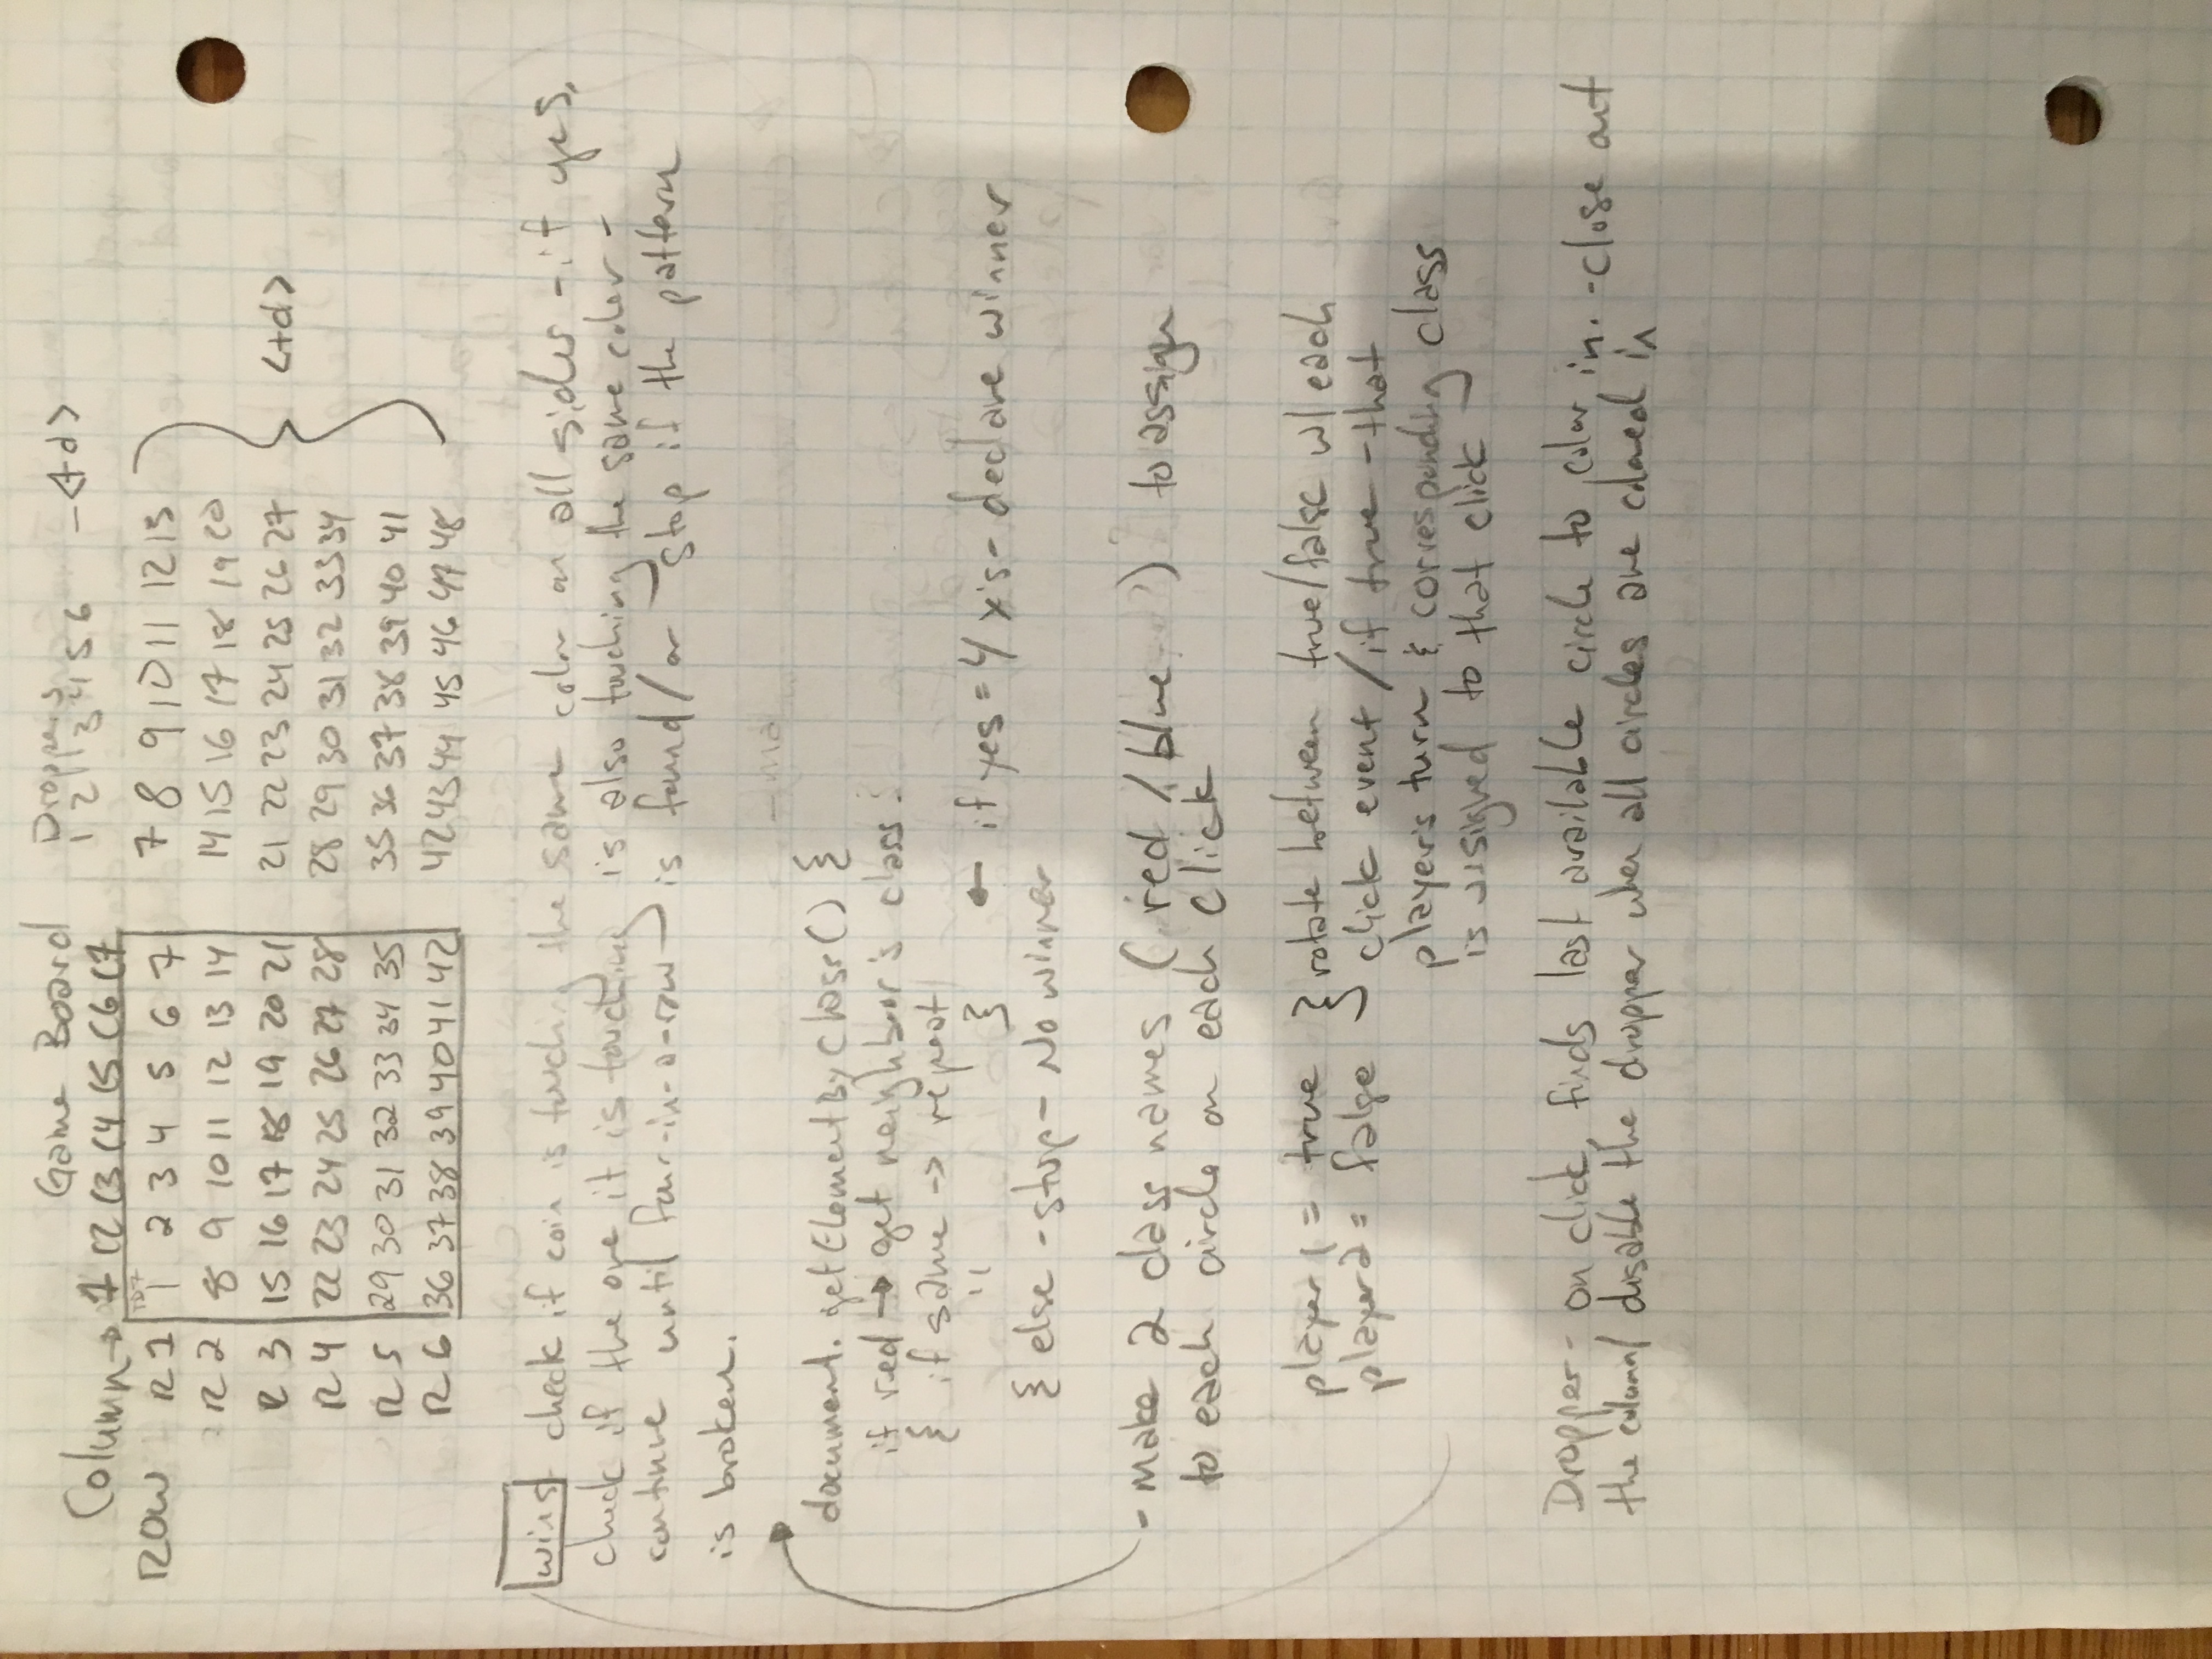 Game Board Droppers
1 2 3 4 5 6 - <td>
Column → 1 C2 C3 C4 C5 C6 C7
TD7
ROW R1 1 2 3 4 5 6 7 7 8 9 10 11 12 13
R2 8 9 10 11 12 13 14 14 15 16 17 18 19 20
R3 15 16 17 18 19 20 21 21 22 23 24 25 26 27 <td>
R4 22 23 24 25 26 27 28 28 29 30 31 32 33 34
R5 29 30 31 32 33 34 35 35 36 37 38 39 40 41
R6 36 37 38 39 40 41 42 42 43 44 45 46 47 48
wins - check if coin is touching the same color on all sides - if yes,
check if the one it is touching is also touching the same color -
continue until four-in-a-row is found/or stop if the pattern
is broken.
document.getElementByClass() {
if red → get neighbor's class:
{ if same -> repeat
" } ← if yes = 4 x's - declare winner
{ else - stop - No winner
- make 2 class names (red / blue) to assign
to each circle on each click
player1 = true } rotate between true/false w/ each
player2 = false click event / if true - that
player's turn & corresponding class
is assigned to that click
Dropper - on click, finds last available circle to color in. - close out
the column/ disable the dropper when all circles are colored in